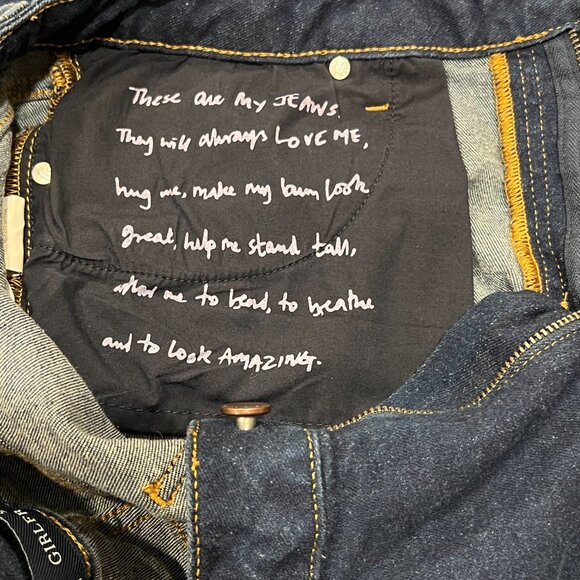 These are My JEANS.
They will always LOVE ME,
hug me, make my bum look
great, help me stand tall,
allow me to bend, to breathe
and to look AMAZING.
GIRLFR